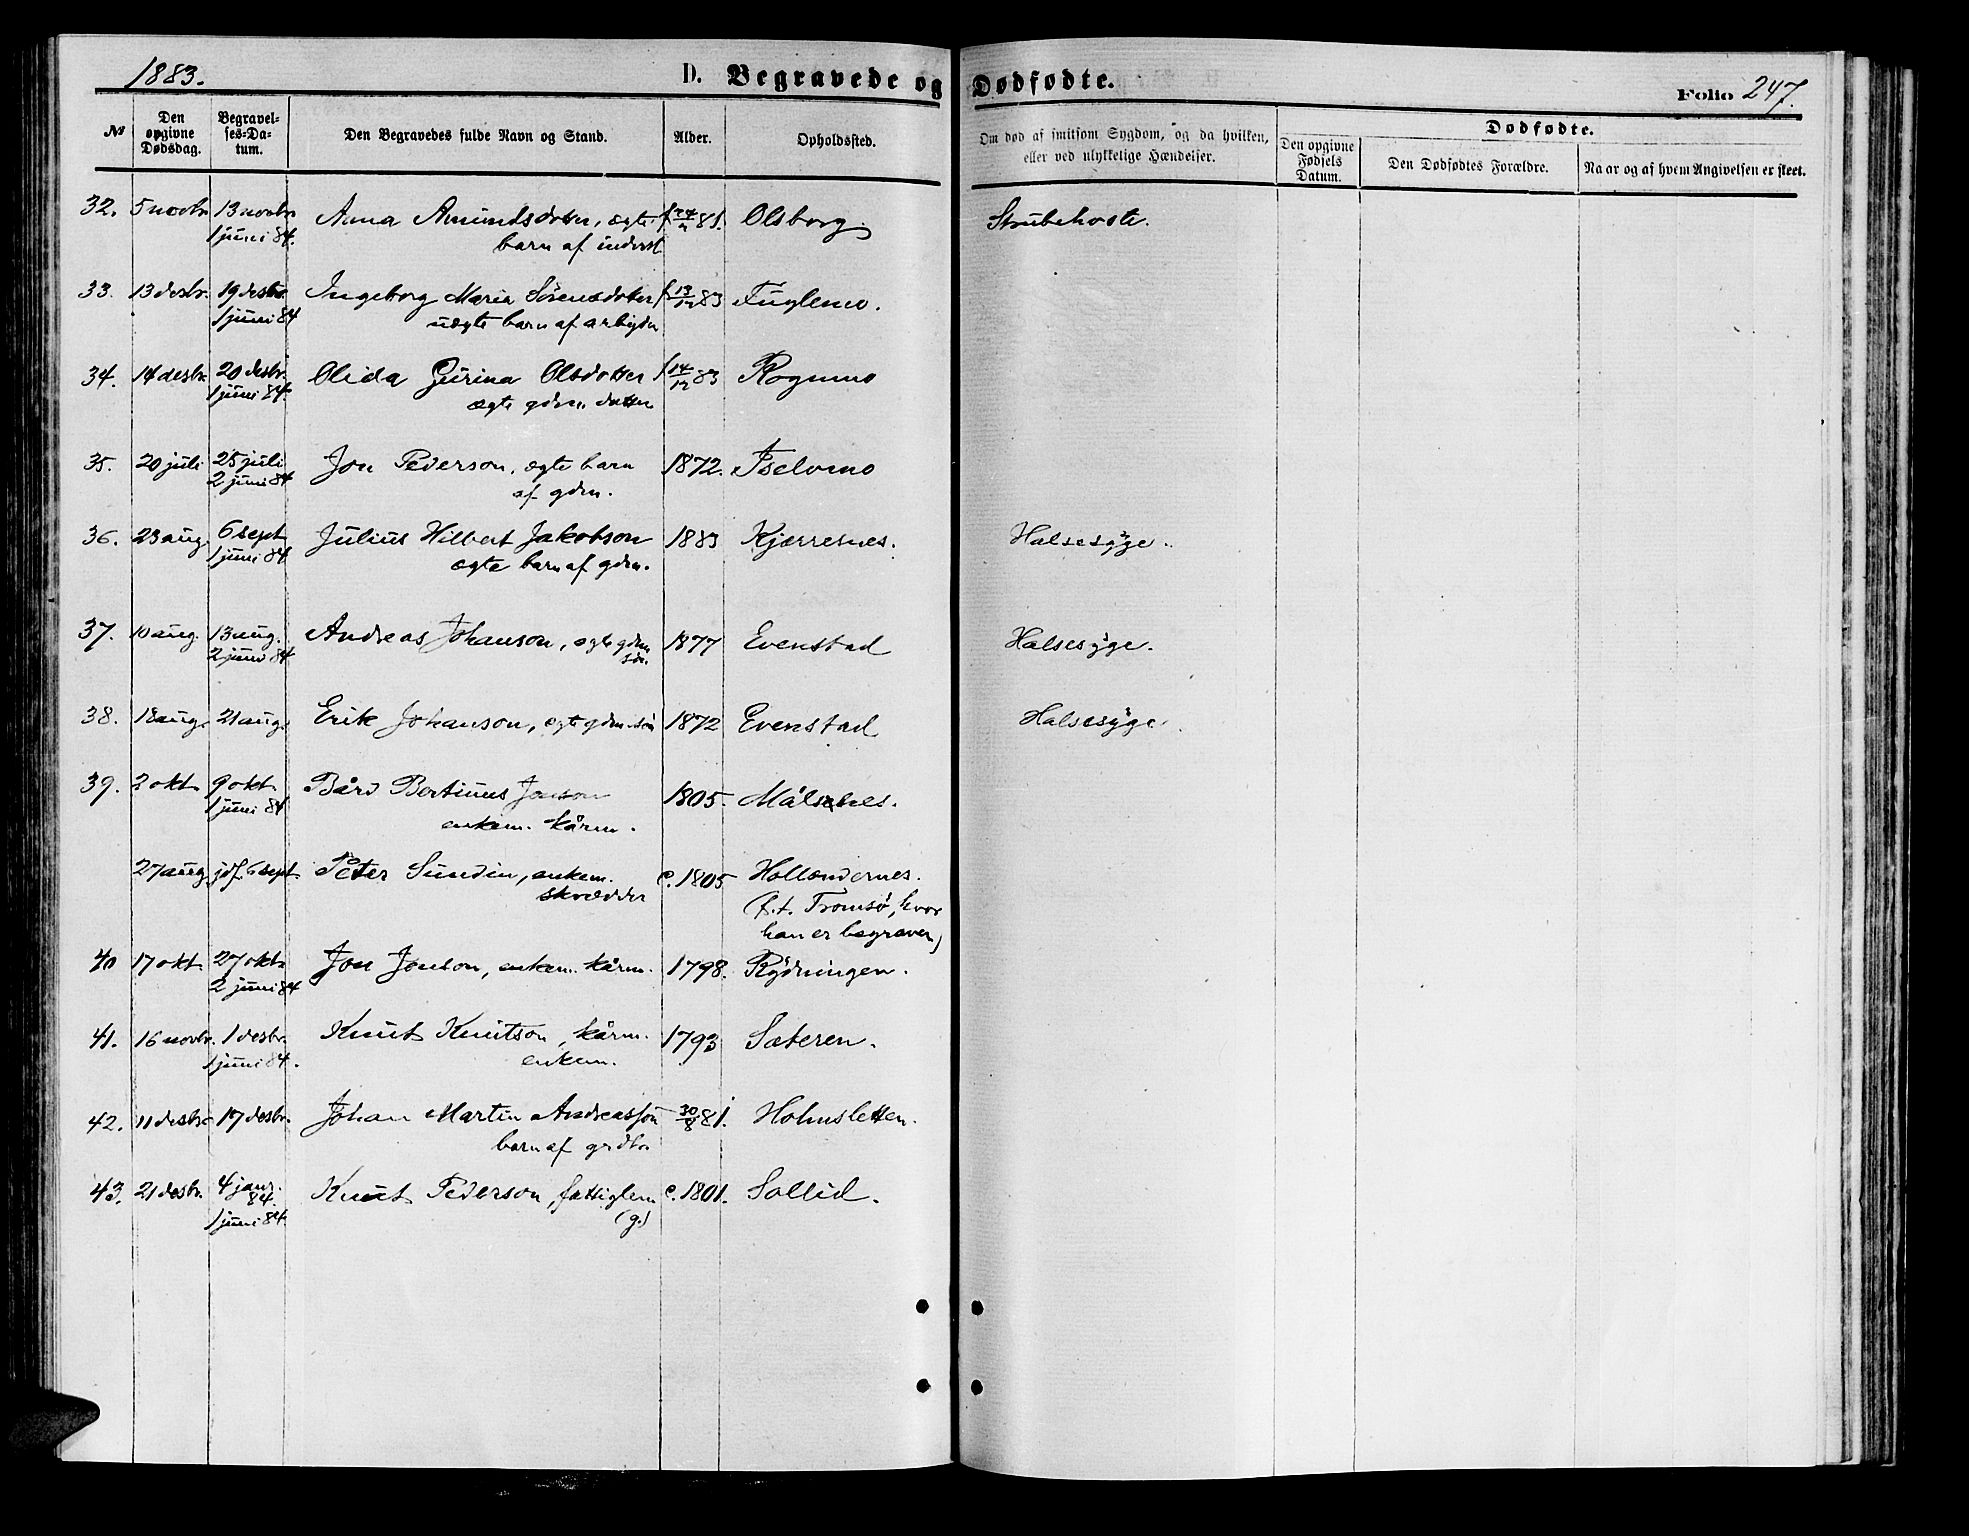 1883.
D. Begravede og Dødfødte.
Folio 247.
№
Den opgivne Dødsdag.
Begravelses-Datum.
Den Begravedes fulde Navn og Stand.
Alder.
Opholdsted.
Om død af smitsom Sygdom, og da hvilken, eller ved ulykkelige Hændelser.
Dødfødte.
Den opgivne Fødsels Datum.
Den Dødfødtes Forældre.
Naar og af hvem Angivelsen er skeet.
32. 5 novbr 13 novbr Anna Amundsdotter, ægte f 24/11 81. Olsborg. Strubehoste.
1 juni 84. barn af inderst
33. 13 desbr. 19 desbr. Ingeborg Maria Sörensdotter f 13/12 83 Fuglemo.
1 juni 84 uægte barn af arbejder
34. 14 desbr. 20 desbr. Olida Gurina Olsdotter f 14/12 83 Rognmo
1 juni 84. ægte gdm. datter
35. 20 juli 25 juli Jon Pederson, ægte barn 1872. Iselvmo
2 juni 84 af gdm.
36. 23 aug. 6 sept Julius Hilbert Jakobson 1883 Kjærresnes. Halsesyge.
1 juni 84 ægte barn af gdm.
37. 10 aug. 13 aug. Andreas Johanson, ægte gdm 1877 Evenstad Halsesyge.
2 juni 84 sön.
38. 18 aug. 21 aug. Erik Johanson, ægte gdm. sön 1872 Evenstad Halsesyge.
39. 2 okt. 9 okt. Bård Bertinus Jonson 1805. Målsnes.
1 juni 84 enkem. kårm.
27 aug. jdf. 6 sept. Peter Sundin, enkem. c. 1805 Hollændernes.
skrædder (f. t. Tromsö, hvor
han er begraven)
40 17 okt. 27 okt. Jon Jonson, enkem. kårm. 1798. Rydningen.
2 juni 84
41. 16 novbr. 1 desbr. Knut Knutson, kårm. 1793 Sæteren.
1 juni 84. enkem.
42. 11 desbr. 17 desbr. Johan Martin Andreassön 30/8 81. Holmsletten.
barn af grdbr.
43. 21 desbr. 4 janr. Knut Pederson, fattiglem c. 1801. Sollid.
84.
1 juni 84 (g.)